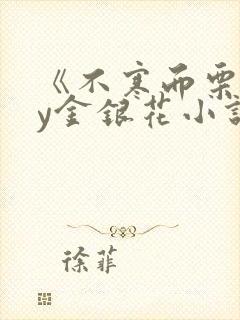 《不寒而栗
y金银花小说
徐菲